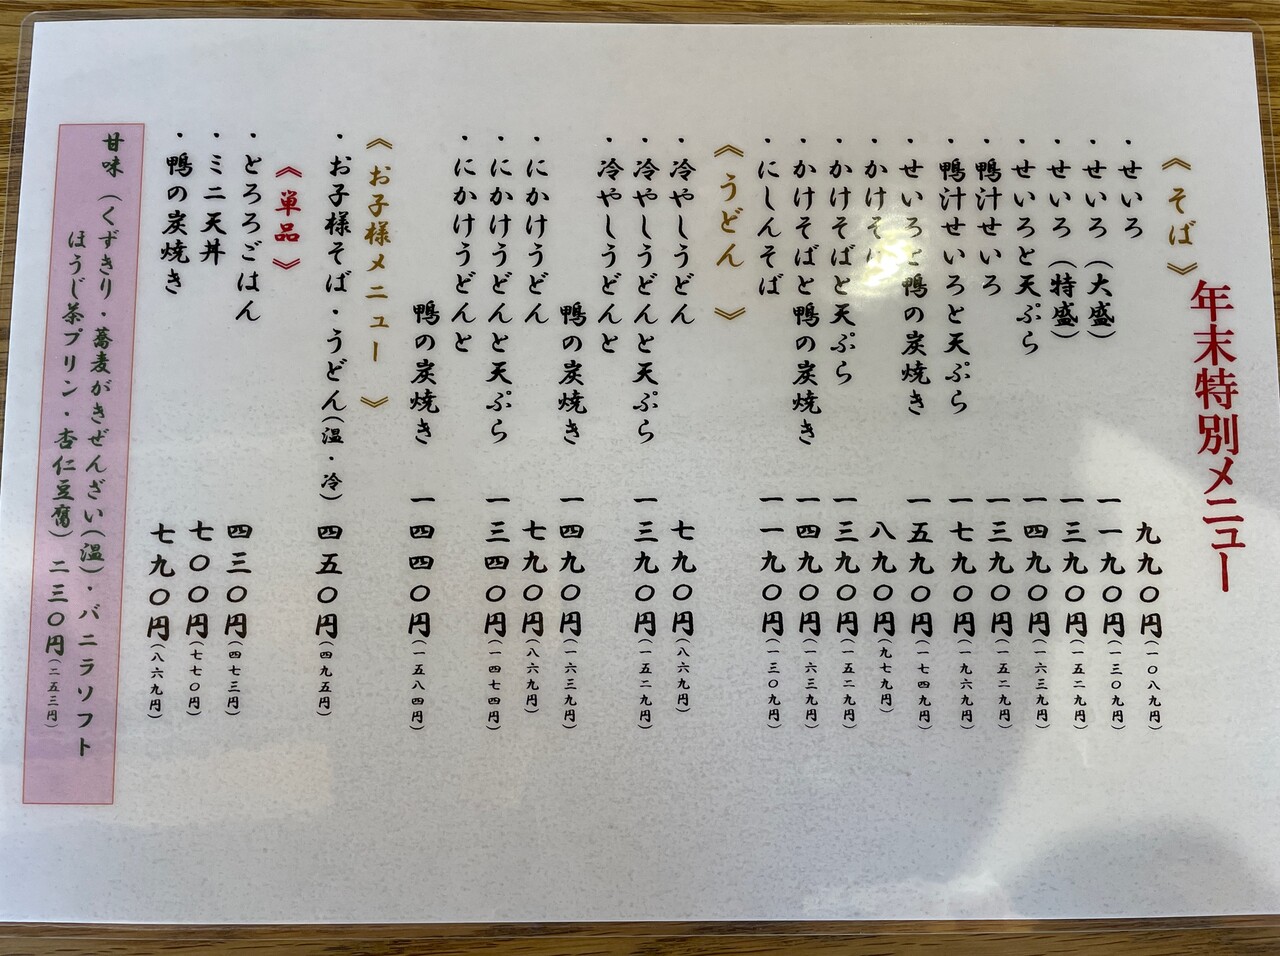 年末特別メニュー
《そば》
・せいろ 九九〇円(一〇八九円)
・せいろ(大盛) 一一九〇円(一三〇九円)
・せいろ(特盛) 一三九〇円(一五二九円)
・せいろと天ぷら 一四九〇円(一六三九円)
・鴨汁せいろ 一三九〇円(一五二九円)
・鴨汁せいろと天ぷら 一七九〇円(一九六九円)
・せいろと鴨の炭焼き 一五九〇円(一七四九円)
・かけそば 八九〇円(九七九円)
・かけそばと天ぷら 一三九〇円(一五二九円)
・かけそばと鴨の炭焼き 一四九〇円(一六三九円)
・にしんそば 一一九〇円(一三〇九円)
《うどん》
・冷やしうどん 七九〇円(八六九円)
・冷やしうどんと天ぷら 一三九〇円(一五二九円)
・冷やしうどんと
鴨の炭焼き 一四九〇円(一六三九円)
・にかけうどん 七九〇円(八六九円)
・にかけうどんと天ぷら 一三四〇円(一四七四円)
・にかけうどんと
鴨の炭焼き 一四四〇円(一五八四円)
《お子様メニュー》
・お子様そば・うどん(温・冷) 四五〇円(四九五円)
《単品》
・とろろごはん 四三〇円(四七三円)
・ミニ天丼 七〇〇円(七七〇円)
・鴨の炭焼き 七九〇円(八六九円)
甘味(くずきり・蕎麦がきぜんざい(温)・バニラソフト
ほうじ茶プリン・杏仁豆腐)二三〇円(二五三円)